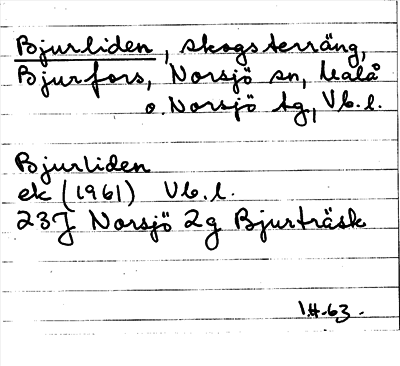 Bjurliden, skogsterräng,
Bjurfors, Norsjö sn, Malå
o. Norsjö tg, Vb. l.
Bjurliden
ek (1961) Vb. l.
23J Norsjö 2g Bjurträsk